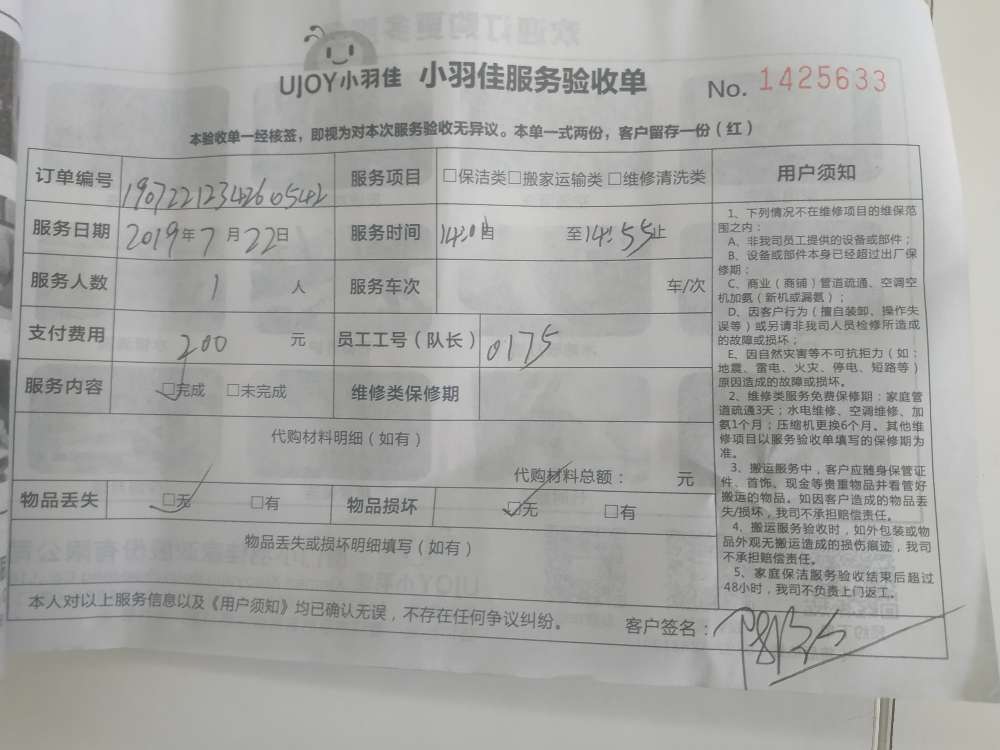 UJOY小羽佳 小羽佳服务验收单 No. 1425633
本验收单一经核签，即视为对本次服务验收无异议。本单一式两份，客户留存一份（红）
订单编号 1907221234260542 服务项目 □保洁类□搬家运输类 □维修清洗类
服务日期 2019年7月22日 服务时间 14:01自 至14:55止
服务人数 1 人 服务车次 车/次
支付费用 200 元 员工工号（队长） 0175
服务内容 □完成 □未完成 维修类保修期
代购材料明细（如有）
代购材料总额： 元
物品丢失 □无 □有 物品损坏 □无 □有
物品丢失或损坏明细填写（如有）
本人对以上服务信息以及《用户须知》均已确认无误，不存在任何争议纠纷。 客户签名：
用户须知
1、下列情况不在维修项目的维保范
围之内：
A、非我司员工提供的设备或部件；
B、设备或部件本身已经超过出厂保
修期；
C、商业（商铺）管道疏通、空调空
机加氨（新机或漏氨）；
D、因客户行为（擅自装卸、操作失
误等）或另请非我司人员检修所造成
的故障或损坏；
E、因自然灾害等不可抗拒力（如：
地震、雷电、火灾、停电、短路等）
原因造成的故障或损坏。
2、维修类服务免费保修期：家庭管
道疏通3天；水电维修、空调维修、加
氨1个月；压缩机更换6个月。其他维
修项目以服务验收单填写的保修期为
准。
3、搬运服务中，客户应随身保管证
件、首饰、现金等贵重物品并看管好
搬运的物品。如因客户造成的物品丢
失/损坏，我司不承担赔偿责任。
4、搬运服务验收时，如外包装或物
品外观无搬运造成的损伤痕迹，我司
不承担赔偿责任。
5、家庭保洁服务验收结束后超过
48小时，我司不负责上门返工。